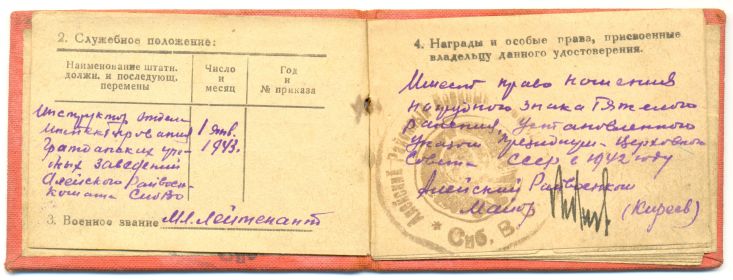 2. Служебное положение:
Наименование штатн. должн. и последующ. перемены
Число и месяц
Год и № приказа
Инструктор отдела
1 Янв.
1943.
Гражданских уче-
бных заведений
Алейского Райвоен-
комата СибВО
3. Военное звание Мл. Лейтенант
4. Награды и особые права, присвоенные
владельцу данного удостоверения.
Имеет право ношения
нагрудного знака Тяжелого
ранения, Установленного
Указом Президиум-Верховного
Совета СССР с 1942 году
Алейский Райвоенком
Майор (Киреев)
Сиб. В.